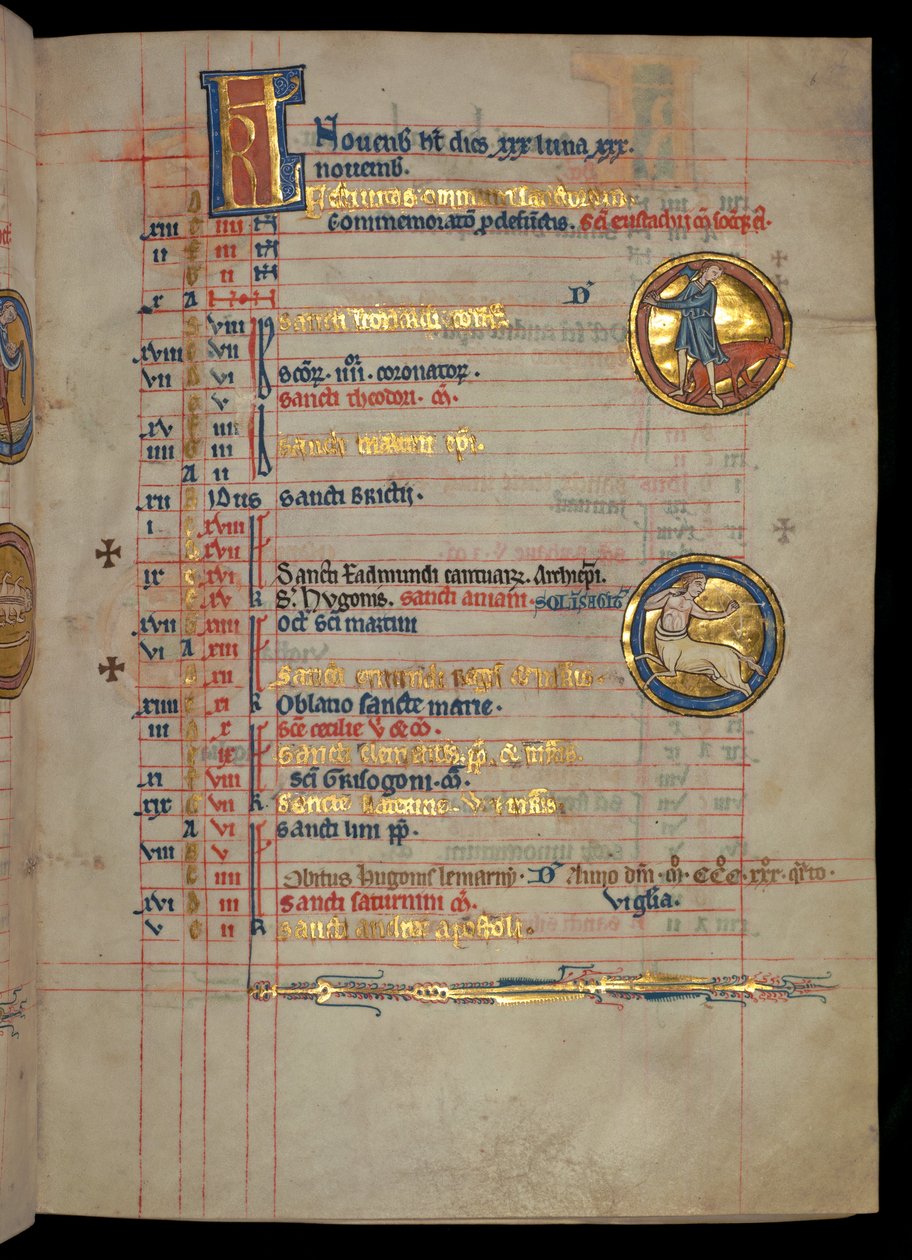 KL Novenb ht dies xxx luna xxx.
novemb.
Festivitas omnium sanctorum
xiii e iiii N Commemoratō p defūctis. Scī eustachij m̄ socīqȝ ei.
ii f iii N
g ii N
x A N D
b viii Sancti
xviii c vii
vii d vi Scōꝝ iiiior coronatoꝝ.
e v Sancti theodori. m̄.
xv f iiii
iiii g iii Sancti martini epī.
A ii
xii b Idus Sancti Brictij.
i c xviii
d xvii
ix e xvi Sancti Eadmundi cantuaꝝ. Archiepī.
f xv K S. Hugonis. Sancti aniani. SOL ĪSAGIT
xvii g xiiii Oct Scī martini
vi A xiii
b xii Sancti edmundi regis & mris
xiiii c xi K Oblatio sancte marie.
iii d x Scē cecilie v̄ & m̄.
e ix Sancti clementis pp. & mris.
xi f viii Scī Grisogoni. m̄.
xix g vii K Sancte katerine. v & mris
A vi Sancti lini pp.
viii b v
c iiii Obitus hugonis lemarny. D Anno dnī. mo. CCCo. xxxo. qrto.
xvi d iii Sancti saturnini m̄. vigīlia.
v e ii K Sancti andree apostoli.